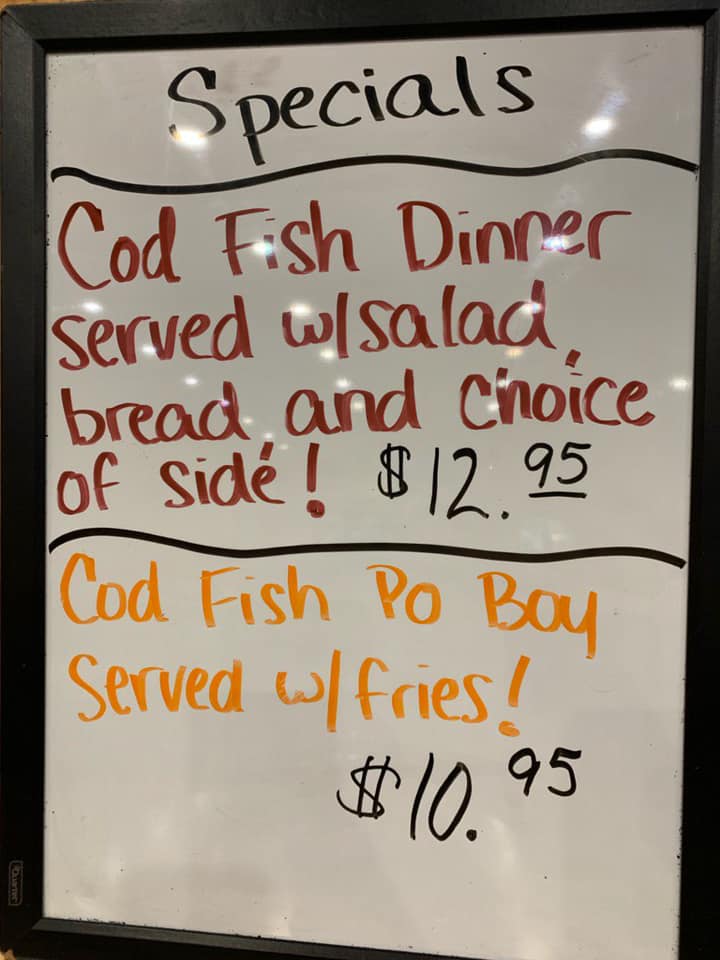 Specials
Cod Fish Dinner
served w/salad,
bread, and choice
of side! $12.95
Cod Fish Po Boy
Served w/fries!
$10.95
Quartet